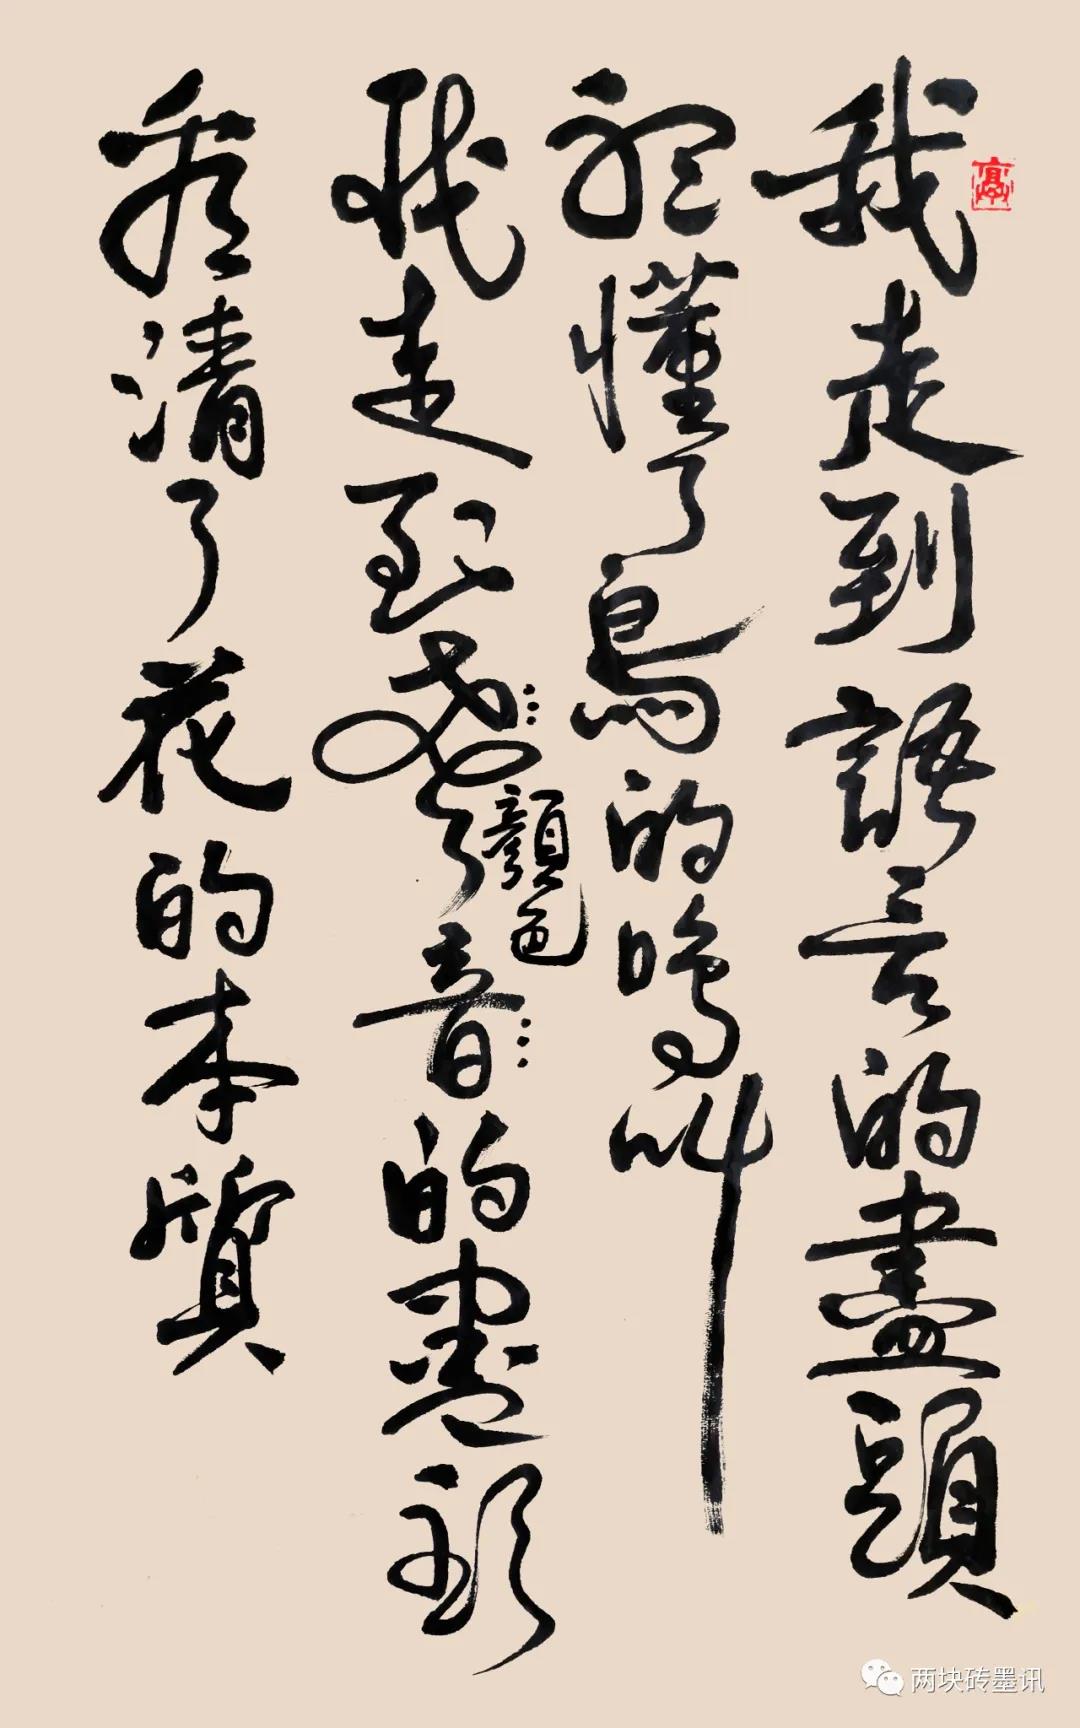 我走到語言的盡頭
聽懂了鳥的鳴叫
我走到聲音的盡頭
顏色
看清了花的本質
两块砖墨讯